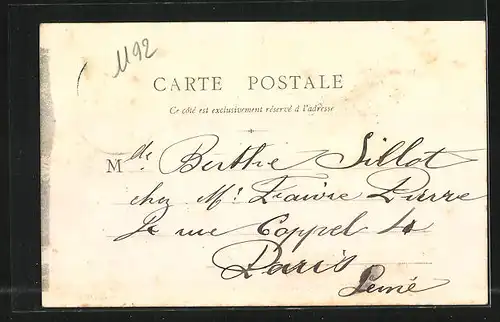 1192
CARTE POSTALE
Ce côté est exclusivement réservé à l'adresse
Mde. Berthe Sillot
chez Mr. Faivre Pierre
rue Coppel 4
Paris